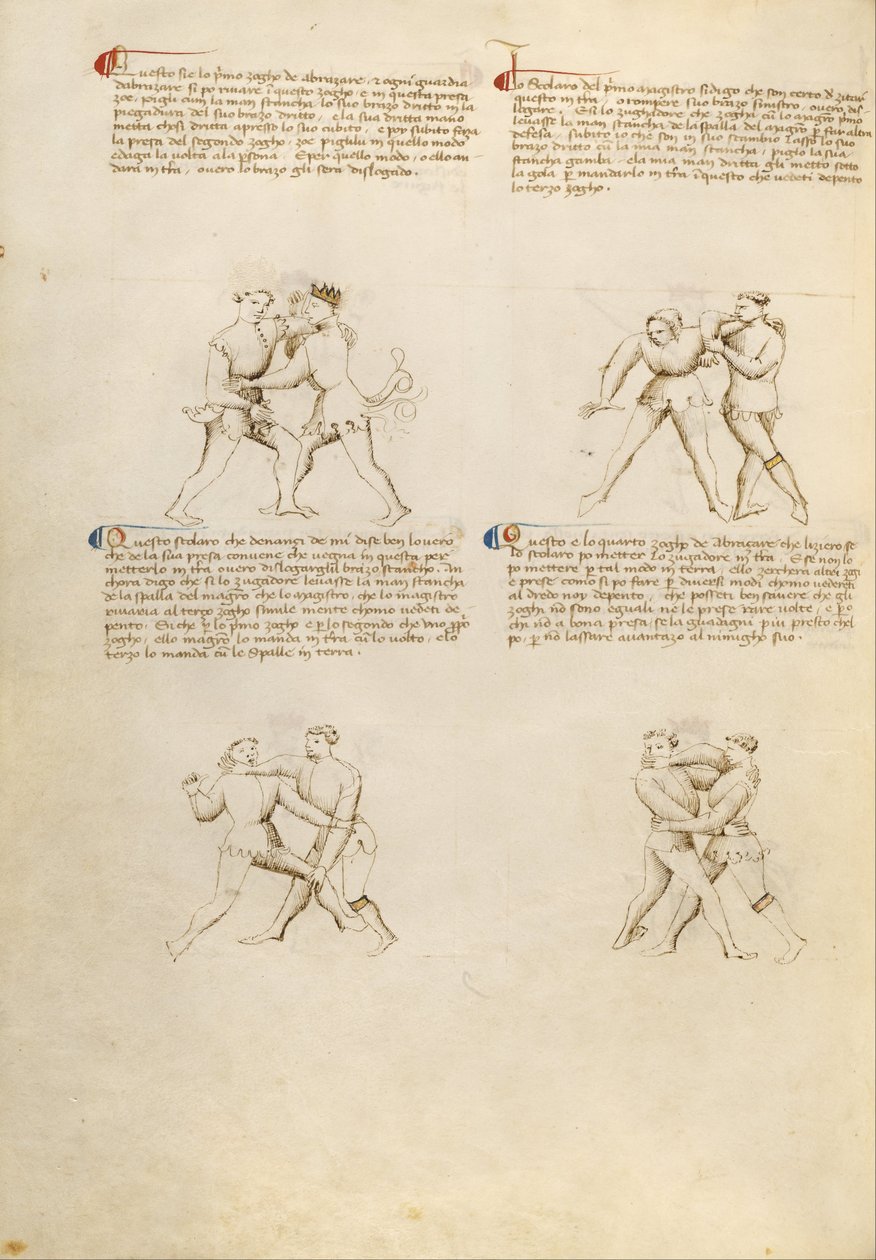 Questo sie lo pmo zogho de abrazare, e ogni guardia
dabrazare si po rivare i questo zogho e in questa presa
zoe, pigli cum la man stancha lo suo brazo dritto in la
piegadura del suo brazo dritto, e la sua dritta mano
metta chosi dritta apresso lo suo cubito, e poy subito faza
la presa del segondo zogho, zoe piglilu in quello modo
e daga la volta a la psona. E per quello modo, o ello an-
dara in tra, overo lo brazo gli sera dislogado.
Io Scolaro del pmo magistro si digo che son certo de zitar
questo in tra, o rompere suo brazo sinistro, overo dis-
legare. E si lo zughadore che zogha cu lo magro pmo
levasse la man stancha de la spalla del magro p far altra
defesa, subito io che son in suo scambio lasso lo suo
brazo dritto cu la mia man stancha, piglo la sua
stancha gamba, e la mia man dritta gli metto sotto
la gola p mandarlo in tra i questo che vedeti depento
lo terzo zogho.
Questo scolaro che denançi de mi dise ben lo vero
che de la sua presa convene che vegna in questa per
metterlo in tra overo dislogargli l brazo stancho. An
chora digo che si lo zugadore levasse la man stancha
de la spalla del magro che lo magistro, che lo magistro
rivaria al terço zogho simile mente chomo vedeti de-
pento. Si che p lo pmo zogho e p lo segondo che uno ppo
zogho, ello magro lo manda in tra cu lo volto, e lo
terzo lo manda cu le spalle in terra.
Questo e lo quarto zogho de Abraçare che liziero se
lo scolaro po metter lo zugadore in tra. E se non lo
po mettere p tal modo in terra, ello zerchera altri zogi
e prese como si po fare p diversi modi chomo vedereti
al dredo noy depento, che posseti ben savere che gli
zoghi no sono eguali ne le prese rare volte, e po
chi no a bona presa, se la guadagni piu presto chel
po, p no lassare avantazo al nimigho suo.